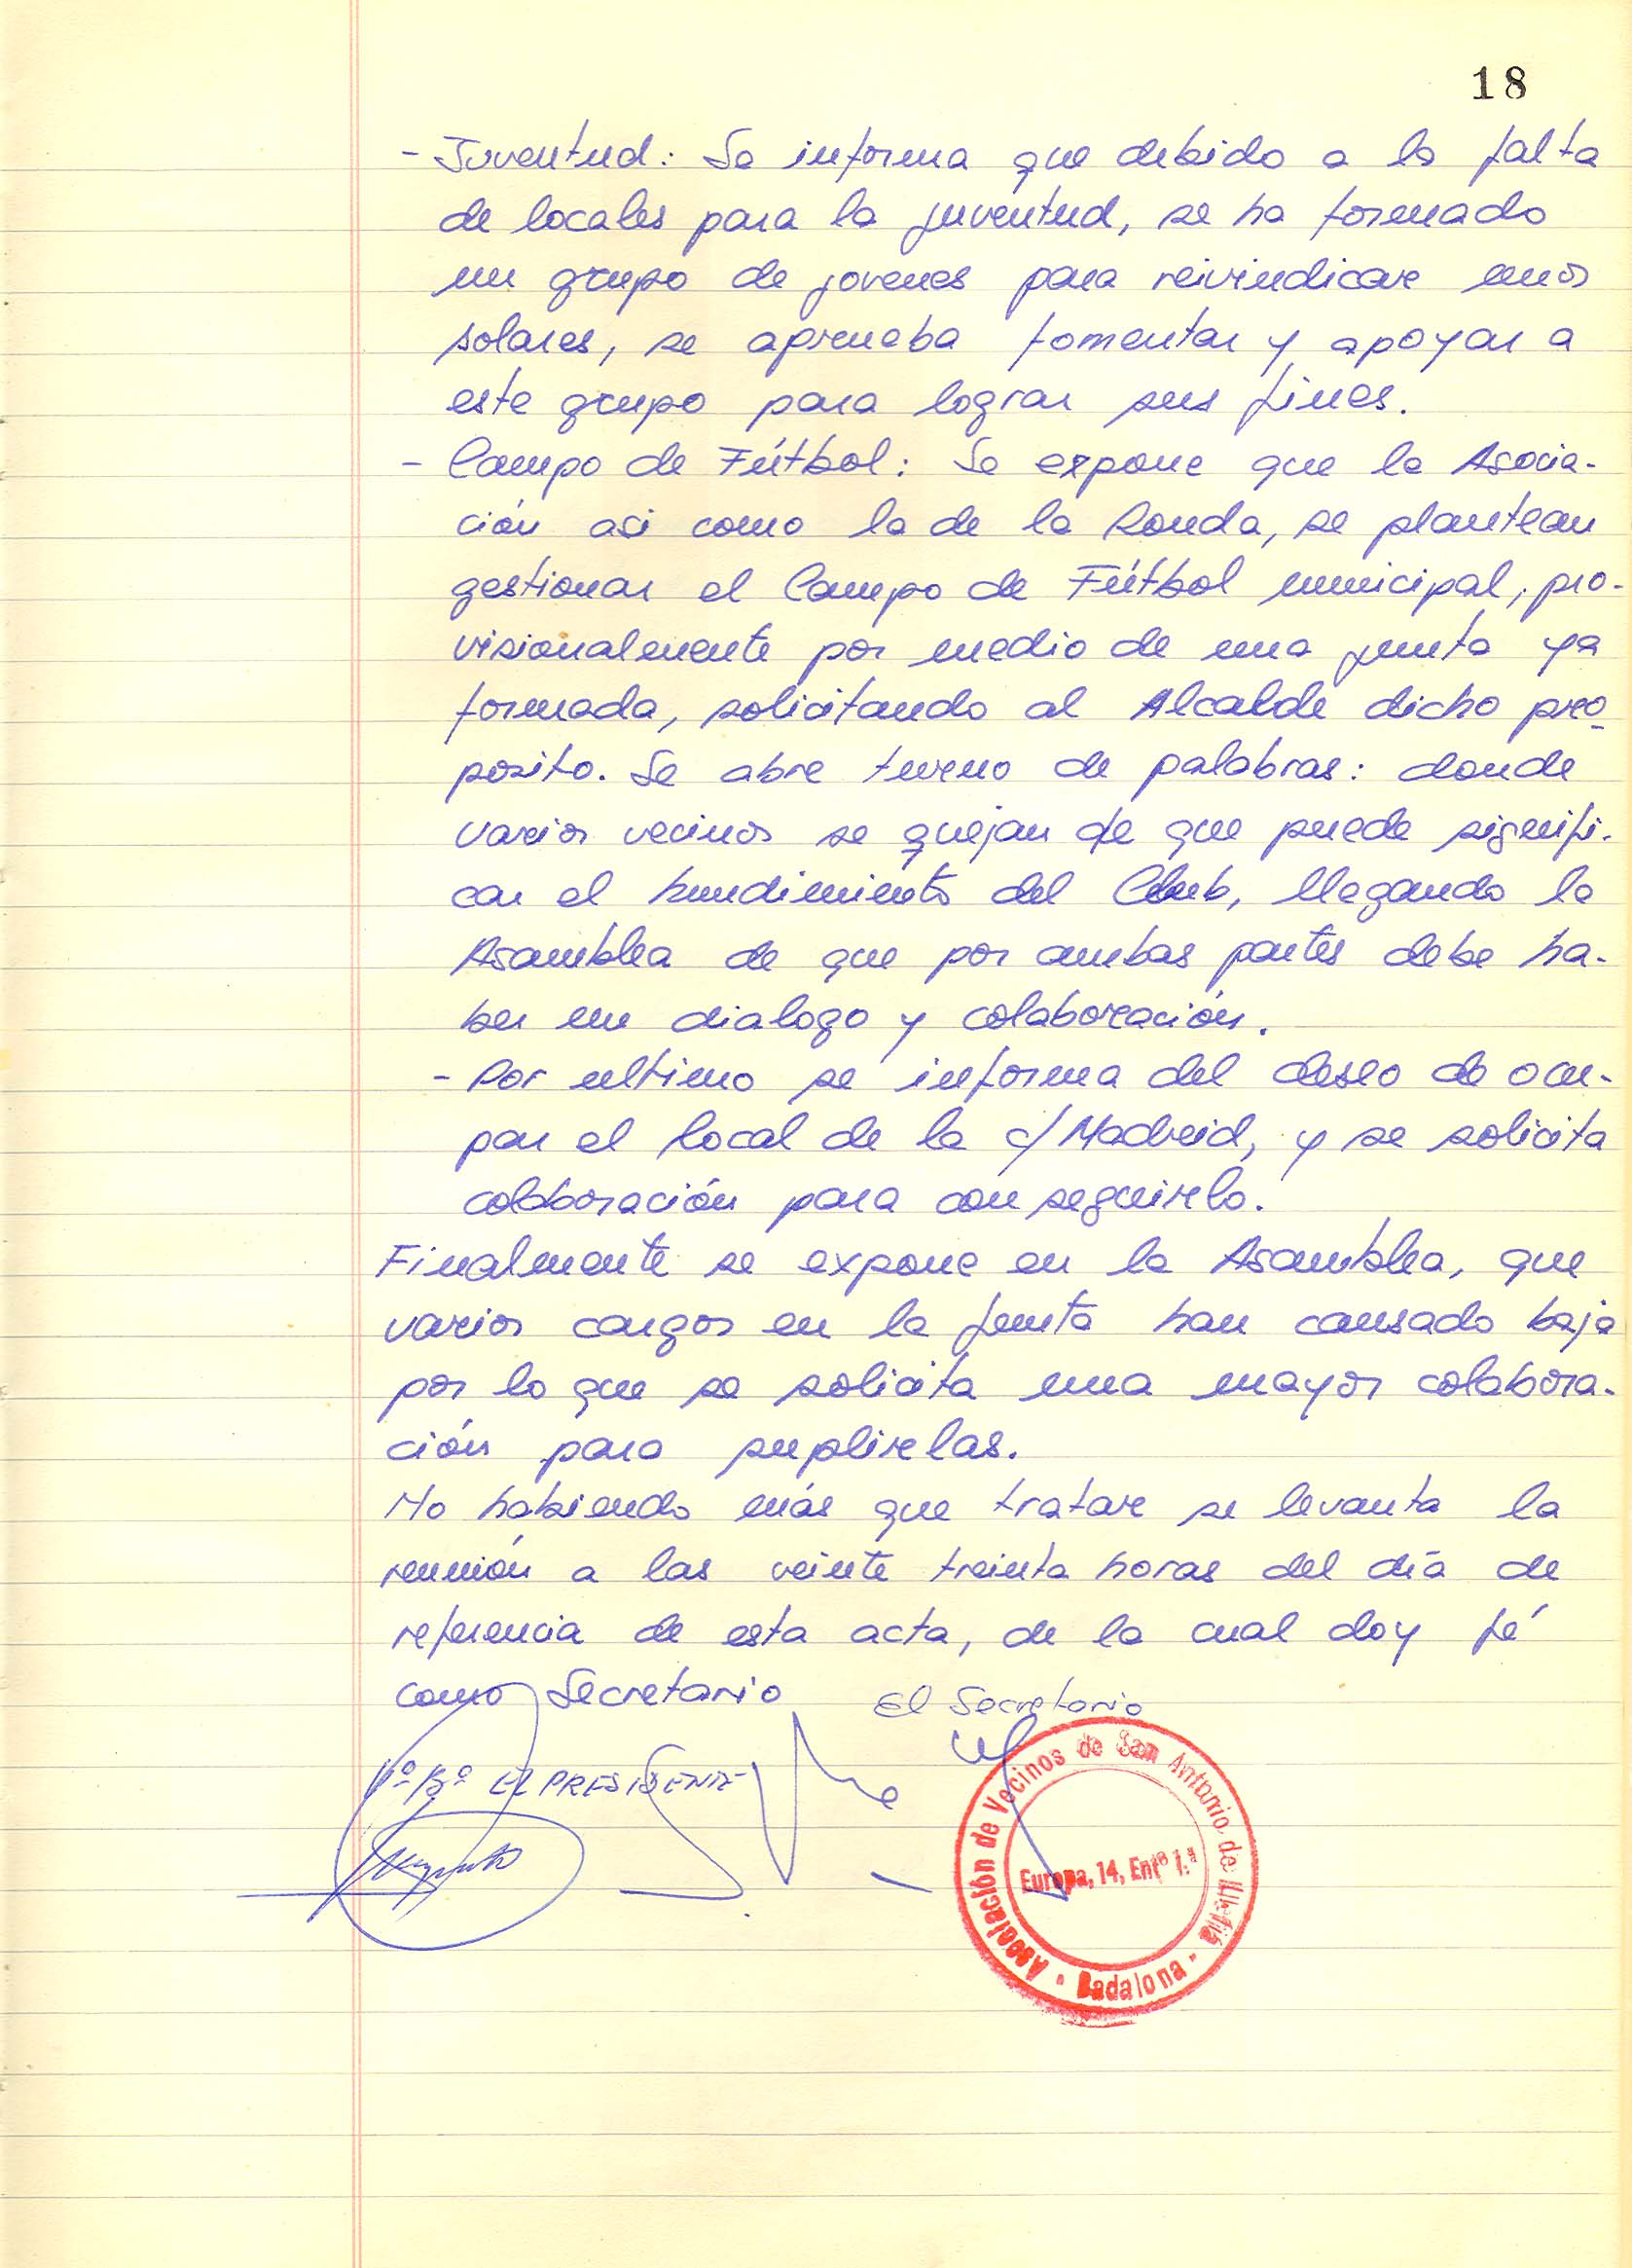 18
- Juventud: Se informa que debido a la falta
de locales para la juventud, se ha formado
un grupo de jovenes para reivindicar unos
solares, se aprueba fomentar y apoyar a
este grupo para lograr sus fines.
- Campo de Fútbol: Se expone que la Asocia-
ción asi como la de la Ronda, se plantean
gestionar el Campo de Fútbol municipal, pro-
visionalmente por medio de una junta ya
formada, solicitando al Alcalde dicho pro-
posito. Se abre turno de palabras: donde
varios vecinos se quejan de que puede signifi-
car el hundimiento del Club, llegando la
Asamblea de que por ambas partes debe ha-
ber un dialogo y colaboración.
- Por ultimo se informa del deseo de ocu-
par el local de la c/ Madrid, y se solicita
colaboración para conseguirlo.
Finalmente se expone en la Asamblea, que
varios cargos en la Junta han causado baja
por lo que se solicita una mayor colabora-
ción para suplirlas.
No habiendo más que tratar se levanta la
reunión a las veinte treinta horas del día de
referencia de esta acta, de la cual doy fé
como Secretario El Secretario
Vº Bº El PRESIDENTE
Asociación de Vecinos de San Antonio de Llefiá
Europa, 14, Entº 1.ª
· Badalona ·